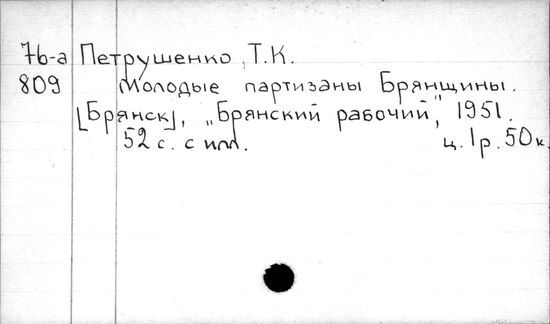 7б-а Петрушенко, Т.К.
809 Молодые партизаны Брянщины.
[Брянск], „Брянский рабочий", 1951.
52 с. с илл. ц. 1р. 50к.